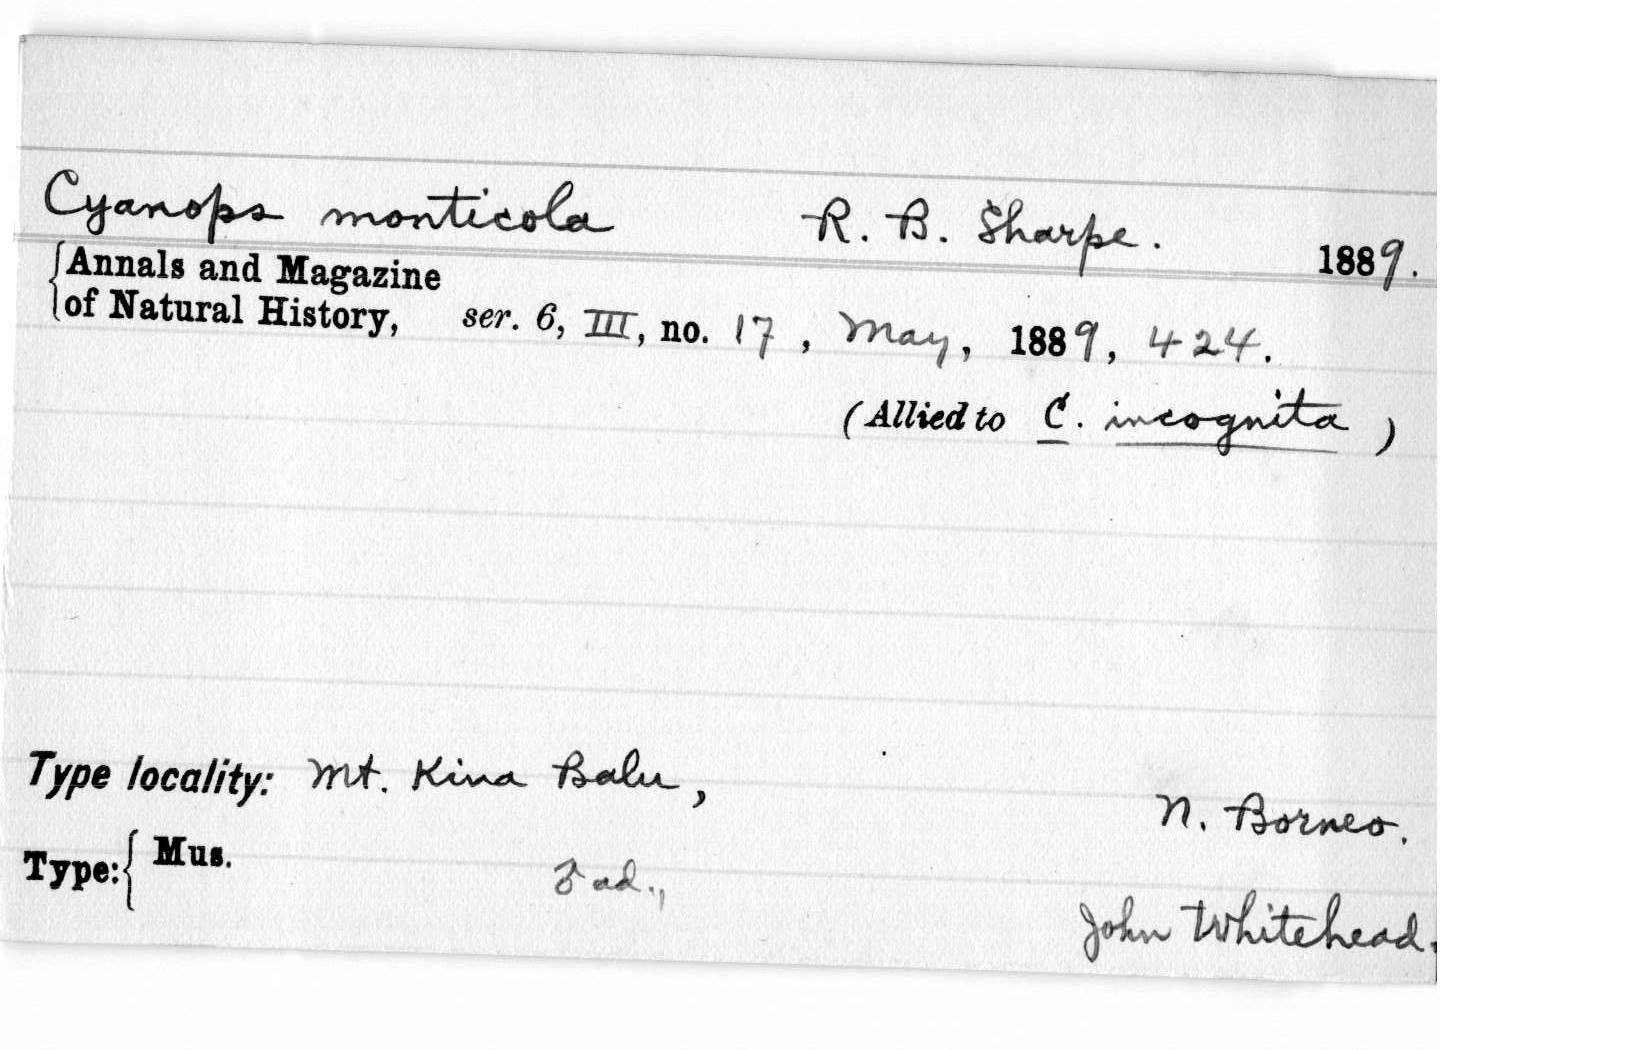 Cyanops monticola R. B. Sharpe. 1889.
Annals and Magazine
of Natural History, ser. 6, III, no. 17, May, 1889, 424.
(Allied to C. incognita)
Type locality: Mt. Kina Balu,
N. Borneo.
Type: Mus. ♂ ad.,
John Whitehead.